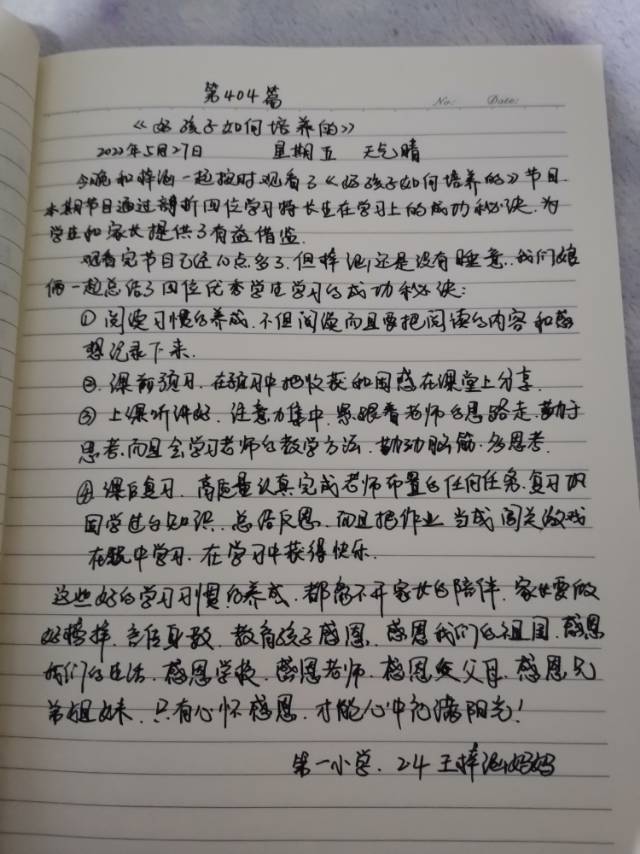 第404篇
No:    Date:
《好孩子如何培养的》
2022年5月27日    星期五    天气晴
今晚和梓涵一起按时观看了《好孩子如何培养的》节目.
本期节目通过剖析四位学习特长生在学习上的成功秘诀.为
学生和家长提供了有益借鉴.
观看完节目已经10点多了.但梓涵还是没有睡意.我们娘
俩一起总结了四位优秀学生学习的成功秘诀:
①阅读习惯的养成.不但阅读而且要把阅读的内容和感
想记录下来.
②.课前预习.在预习中把收获和困惑在课堂上分享.
③上课听讲好.注意力集中.紧跟着老师的思路走.勤于
思考.而且会学习老师的教学方法.勤动脑筋.多思考.
④课后复习.高质量认真完成老师布置的任何任务.复习巩
固学过的知识.总结反思.而且把作业当成闯关游戏
在玩中学习.在学习中获得快乐.
这些好的学习习惯的养成.都离不开家长的陪伴.家长要做
好榜样.言传身教.教育孩子感恩.感恩我们的祖国.感恩
我们的生活.感恩学校.感恩老师.感恩父母.感恩兄
弟姐妹.只有心怀感恩.才能心中充满阳光!
第一小学.24王梓涵妈妈